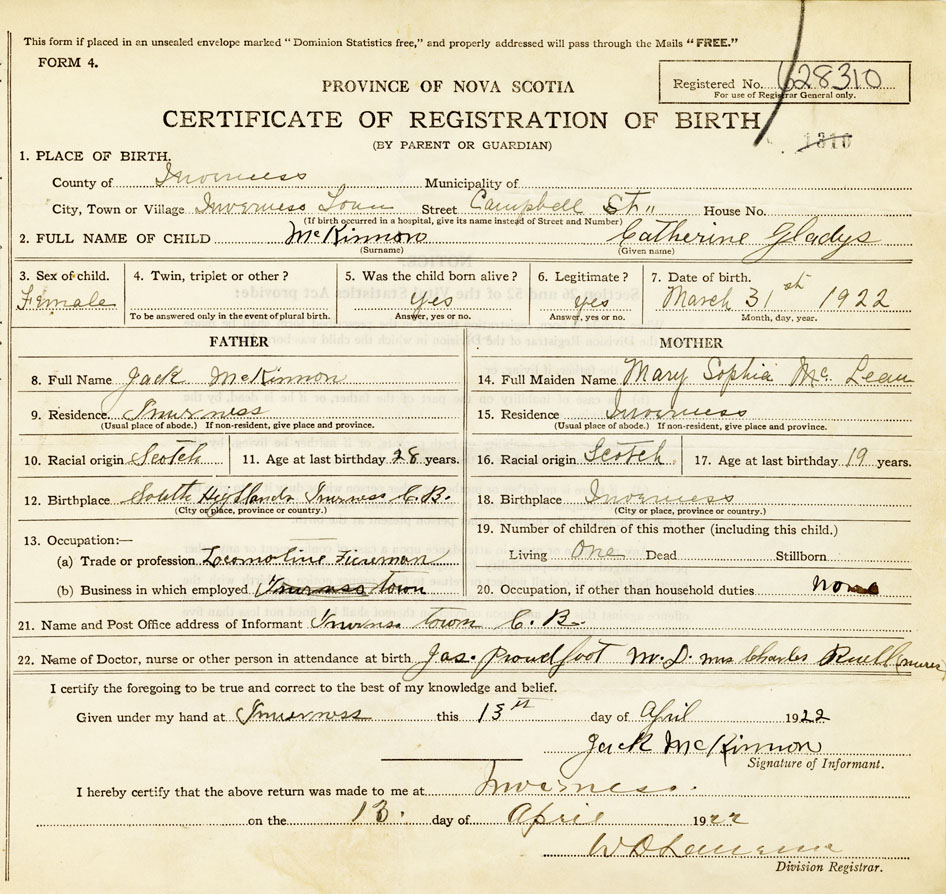 This form if placed in an unsealed envelope marked "Dominion Statistics free," and properly addressed will pass through the Mails "FREE."
FORM 4.
PROVINCE OF NOVA SCOTIA
Registered No. 628310
For use of Registrar General only.
CERTIFICATE OF REGISTRATION OF BIRTH
(BY PARENT OR GUARDIAN)
1310
1. PLACE OF BIRTH.
County of Inverness Municipality of
City, Town or Village Inverness Town Street Campbell St. " House No.
(If birth occurred in a hospital, give its name instead of Street and Number)
2. FULL NAME OF CHILD McKinnon Catherine Gladys
(Surname) (Given name)
3. Sex of child. 4. Twin, triplet or other? 5. Was the child born alive? 6. Legitimate? 7. Date of birth.
Female yes yes March 31st 1922
To be answered only in the event of plural birth. Answer, yes or no. Answer, yes or no. Month, day, year.
FATHER MOTHER
8. Full Name Jack McKinnon 14. Full Maiden Name Mary Sophia Mc Lean
9. Residence Inverness 15. Residence Inverness
(Usual place of abode.) If non-resident, give place and province. (Usual place of abode.) If non-resident, give place and province.
10. Racial origin Scotch 11. Age at last birthday 28 years. 16. Racial origin Scotch 17. Age at last birthday 19 years.
12. Birthplace South Highlands Inverness C.B. 18. Birthplace Inverness
(City or place, province or country.) (City or place, province or country.)
13. Occupation:— 19. Number of children of this mother (including this child.)
(a) Trade or profession Locomotive Fireman Living One Dead Stillborn
(b) Business in which employed Inverness town 20. Occupation, if other than household duties None
21. Name and Post Office address of Informant Inverness town C. B.
22. Name of Doctor, nurse or other person in attendance at birth Jas. Proudfoot M.D. Mrs Charles (nurse)
I certify the foregoing to be true and correct to the best of my knowledge and belief.
Given under my hand at Inverness this 13th day of April 1922
Jack McKinnon
Signature of Informant.
I hereby certify that the above return was made to me at Inverness.
on the 13. day of April 1922
Division Registrar.